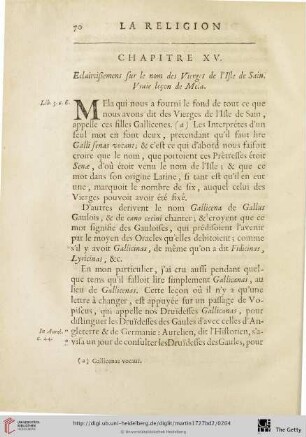 70 LA RELIGION
CHAPITRE XV.
Eclaircissement sur le nom des Vierges de l'Isle de Sain.
Vraie leçon de Mela.
Lib. 3. c. 6.
MEla qui nous a fourni le fond de tout ce que
nous avons dit des Vierges de l'Isle de Sain,
appelle ces filles Gallicenes. (a) Les Interprètes d'un
seul mot en font deux, pretendant qu'il faut lire
Galli senas vocant; & c'est ce qui d'abord nous faisoit
croire que le nom, que portoient ces Prêtresses étoit
Senæ, d'où étoit venu le nom de l'Isle; & que ce
mot dans son origine Latine, si tant est qu'il en eut
une, marquoit le nombre de six, auquel celui des
Vierges pouvoit avoir été fixé.
D'autres derivent le nom Gallicena de Gallus
Gaulois, & de cano cecini chanter, & croyent que ce
mot signifie des Gauloises, qui prédisoient l'avenir
par le moyen des Oracles qu'elles debitoient; comme
s'il y avoit Gallicinas, de même qu'on a dit Fidicinas,
Lyricinas, &c.
En mon particulier, j'ai cru aussi pendant quel-
que tems qu'il falloit lire simplement Gallicanas, au
lieu de Gallicenas. Cette leçon où il n'y a qu'une
lettre à changer, est appuyée sur un passage de Vo-
piscus, qui appelle nos Druidesses Gallicanas, pour
distinguer les Druidesses des Gaules d'avec celles d'An-
gleterre & de Germanie: Aurelien, dit l'Historien, s'a-
In Aurel.
c. 44.
visa un jour de consulter les Druidesses des Gaules, pour
(a) Gallicenas vocant.
http://digi.ub.uni-heidelberg.de/diglit/martin1727bd2/0204
© Universitätsbibliothek Heidelberg